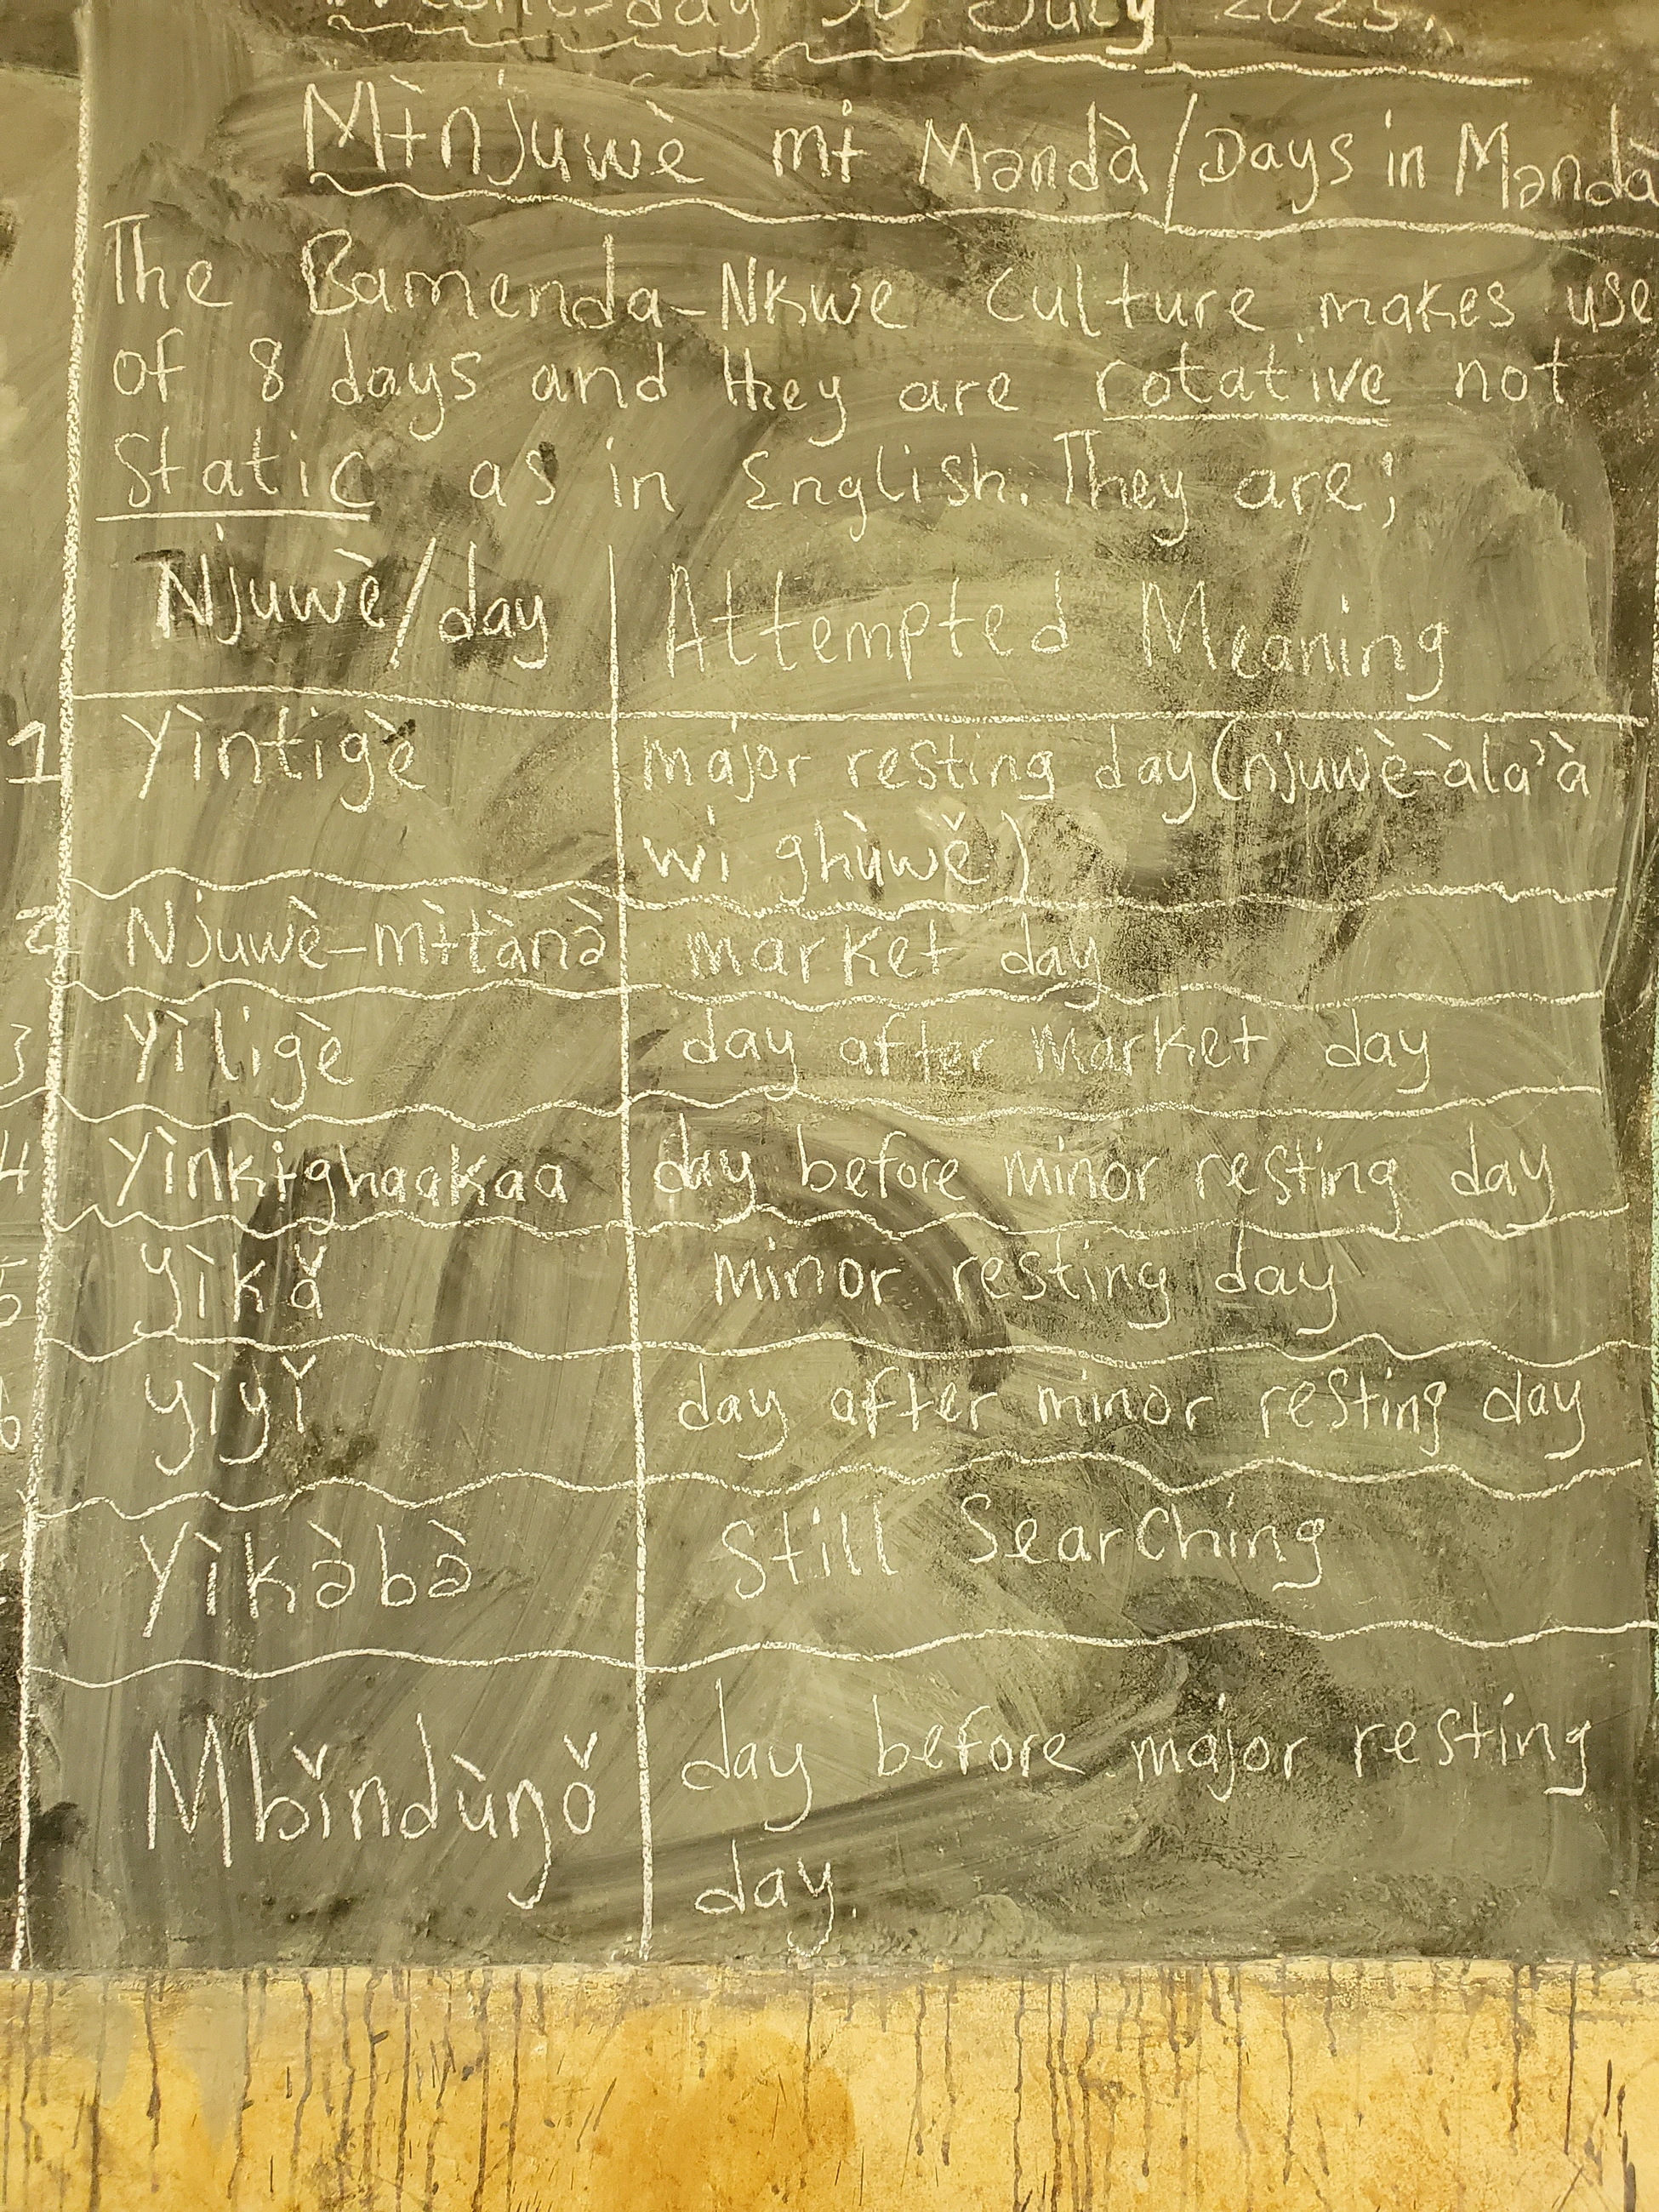 Wednesday 30 July 2025.
Mɨ̀njuwè mɨ Məndà/Days in Məndà
The Bamenda-Nkwe Culture makes use
of 8 days and they are rotative not
static as in English. They are;
Njuwè/day Attempted Meaning
1 Yìntigè major resting day (njuwè-àla'à
wi ghùwě)
2 Njuwè-mɨ̀tànə̀ market day
3 Yìligè day after market day
4 Yìnkɨghaakaa day before minor resting day
5 yìkǎ minor resting day
6 yìyǐ day after minor resting day
Yìkə̀bə̀ Still Searching
Mbǐndùŋǒ day before major resting
day.